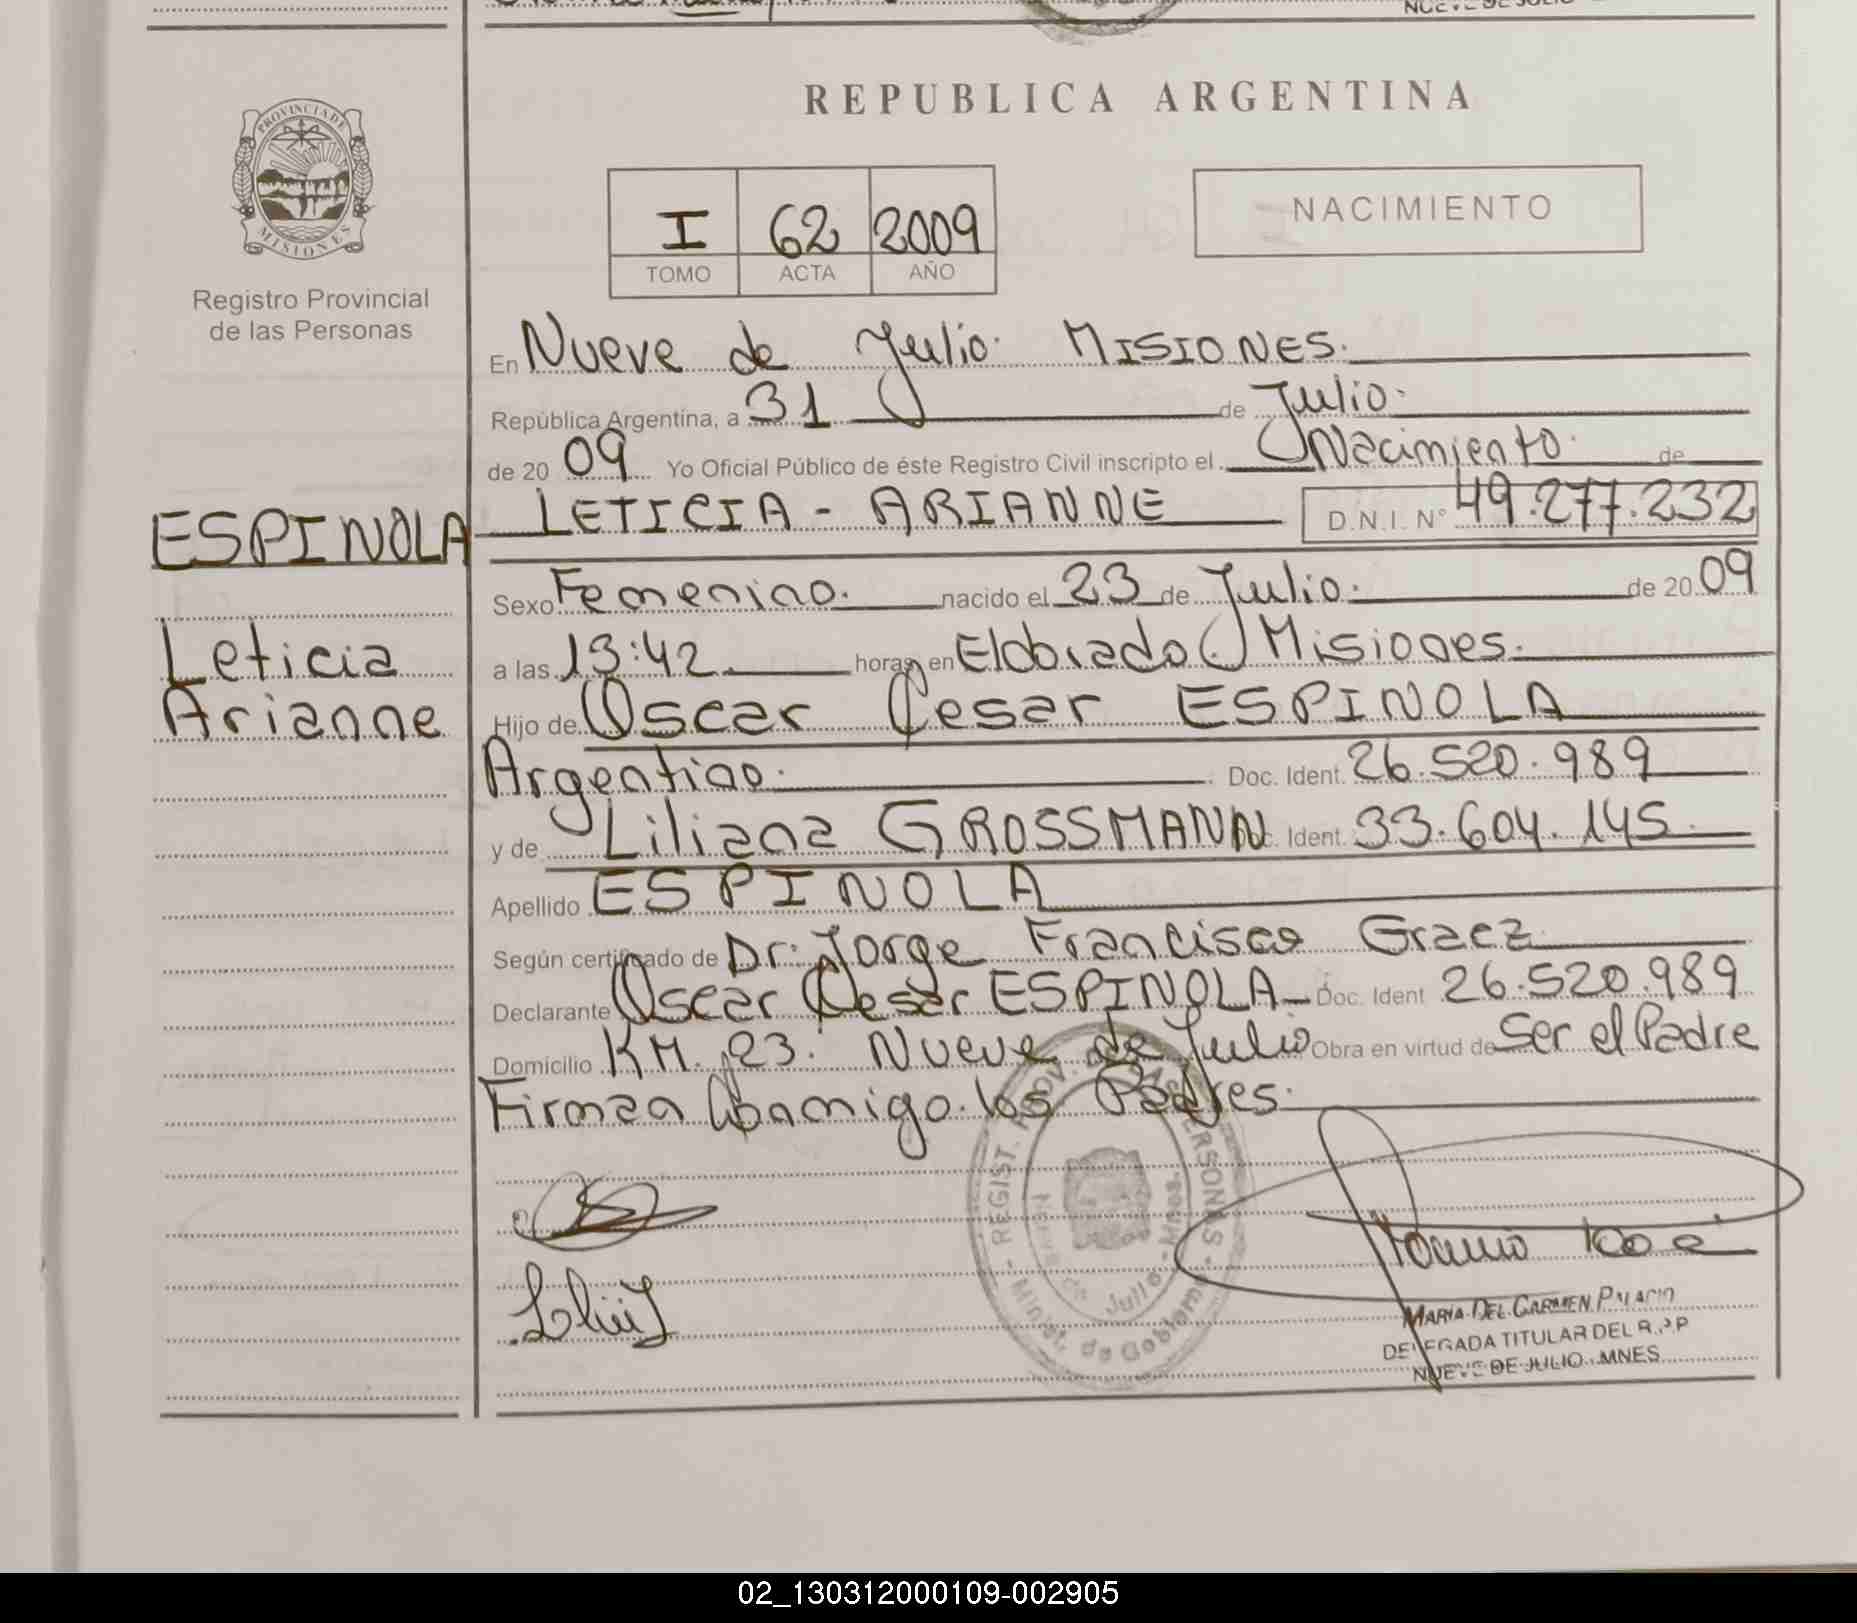 NUEVE DE JULIO
REPUBLICA ARGENTINA
PROVINCIA DE
MISIONES
Registro Provincial
de las Personas
I 62 2009
TOMO ACTA AÑO
NACIMIENTO
En Nueve de Julio. MISIONES.
República Argentina, a 31 de Julio.
de 20 09 Yo Oficial Público de éste Registro Civil inscripto el Nacimiento. de
ESPINOLA
LETICIA - ARIANNE D.N.I. N° 49.277.232
Sexo Femenino. nacido el 23 de Julio. de 20 09
Leticia
Arianne
a las 13:42 horas en Eldorado. Misiones.
Hijo de Oscar Cesar ESPINOLA
Argentino. Doc. Ident. 26.520.989
y de Liliana GROSSMANN Doc. Ident. 33.604.145.
Apellido ESPINOLA
Según certificado de Dr. Jorge Francisco Graez
Declarante Oscar Cesar ESPINOLA Doc. Ident 26.520.989
Domicilio KM. 23. Nueve de Julio Obra en virtud de Ser el Padre
Firman Conmigo los Padres.
REGIST. PROV. DE LAS PERSONAS
Nueve de Julio - Mnes.
Minist. de Gobierno
MARIA DEL CARMEN PALACIO
DELEGADA TITULAR DEL R.P.P
NUEVE DE JULIO MNES
02_130312000109-002905